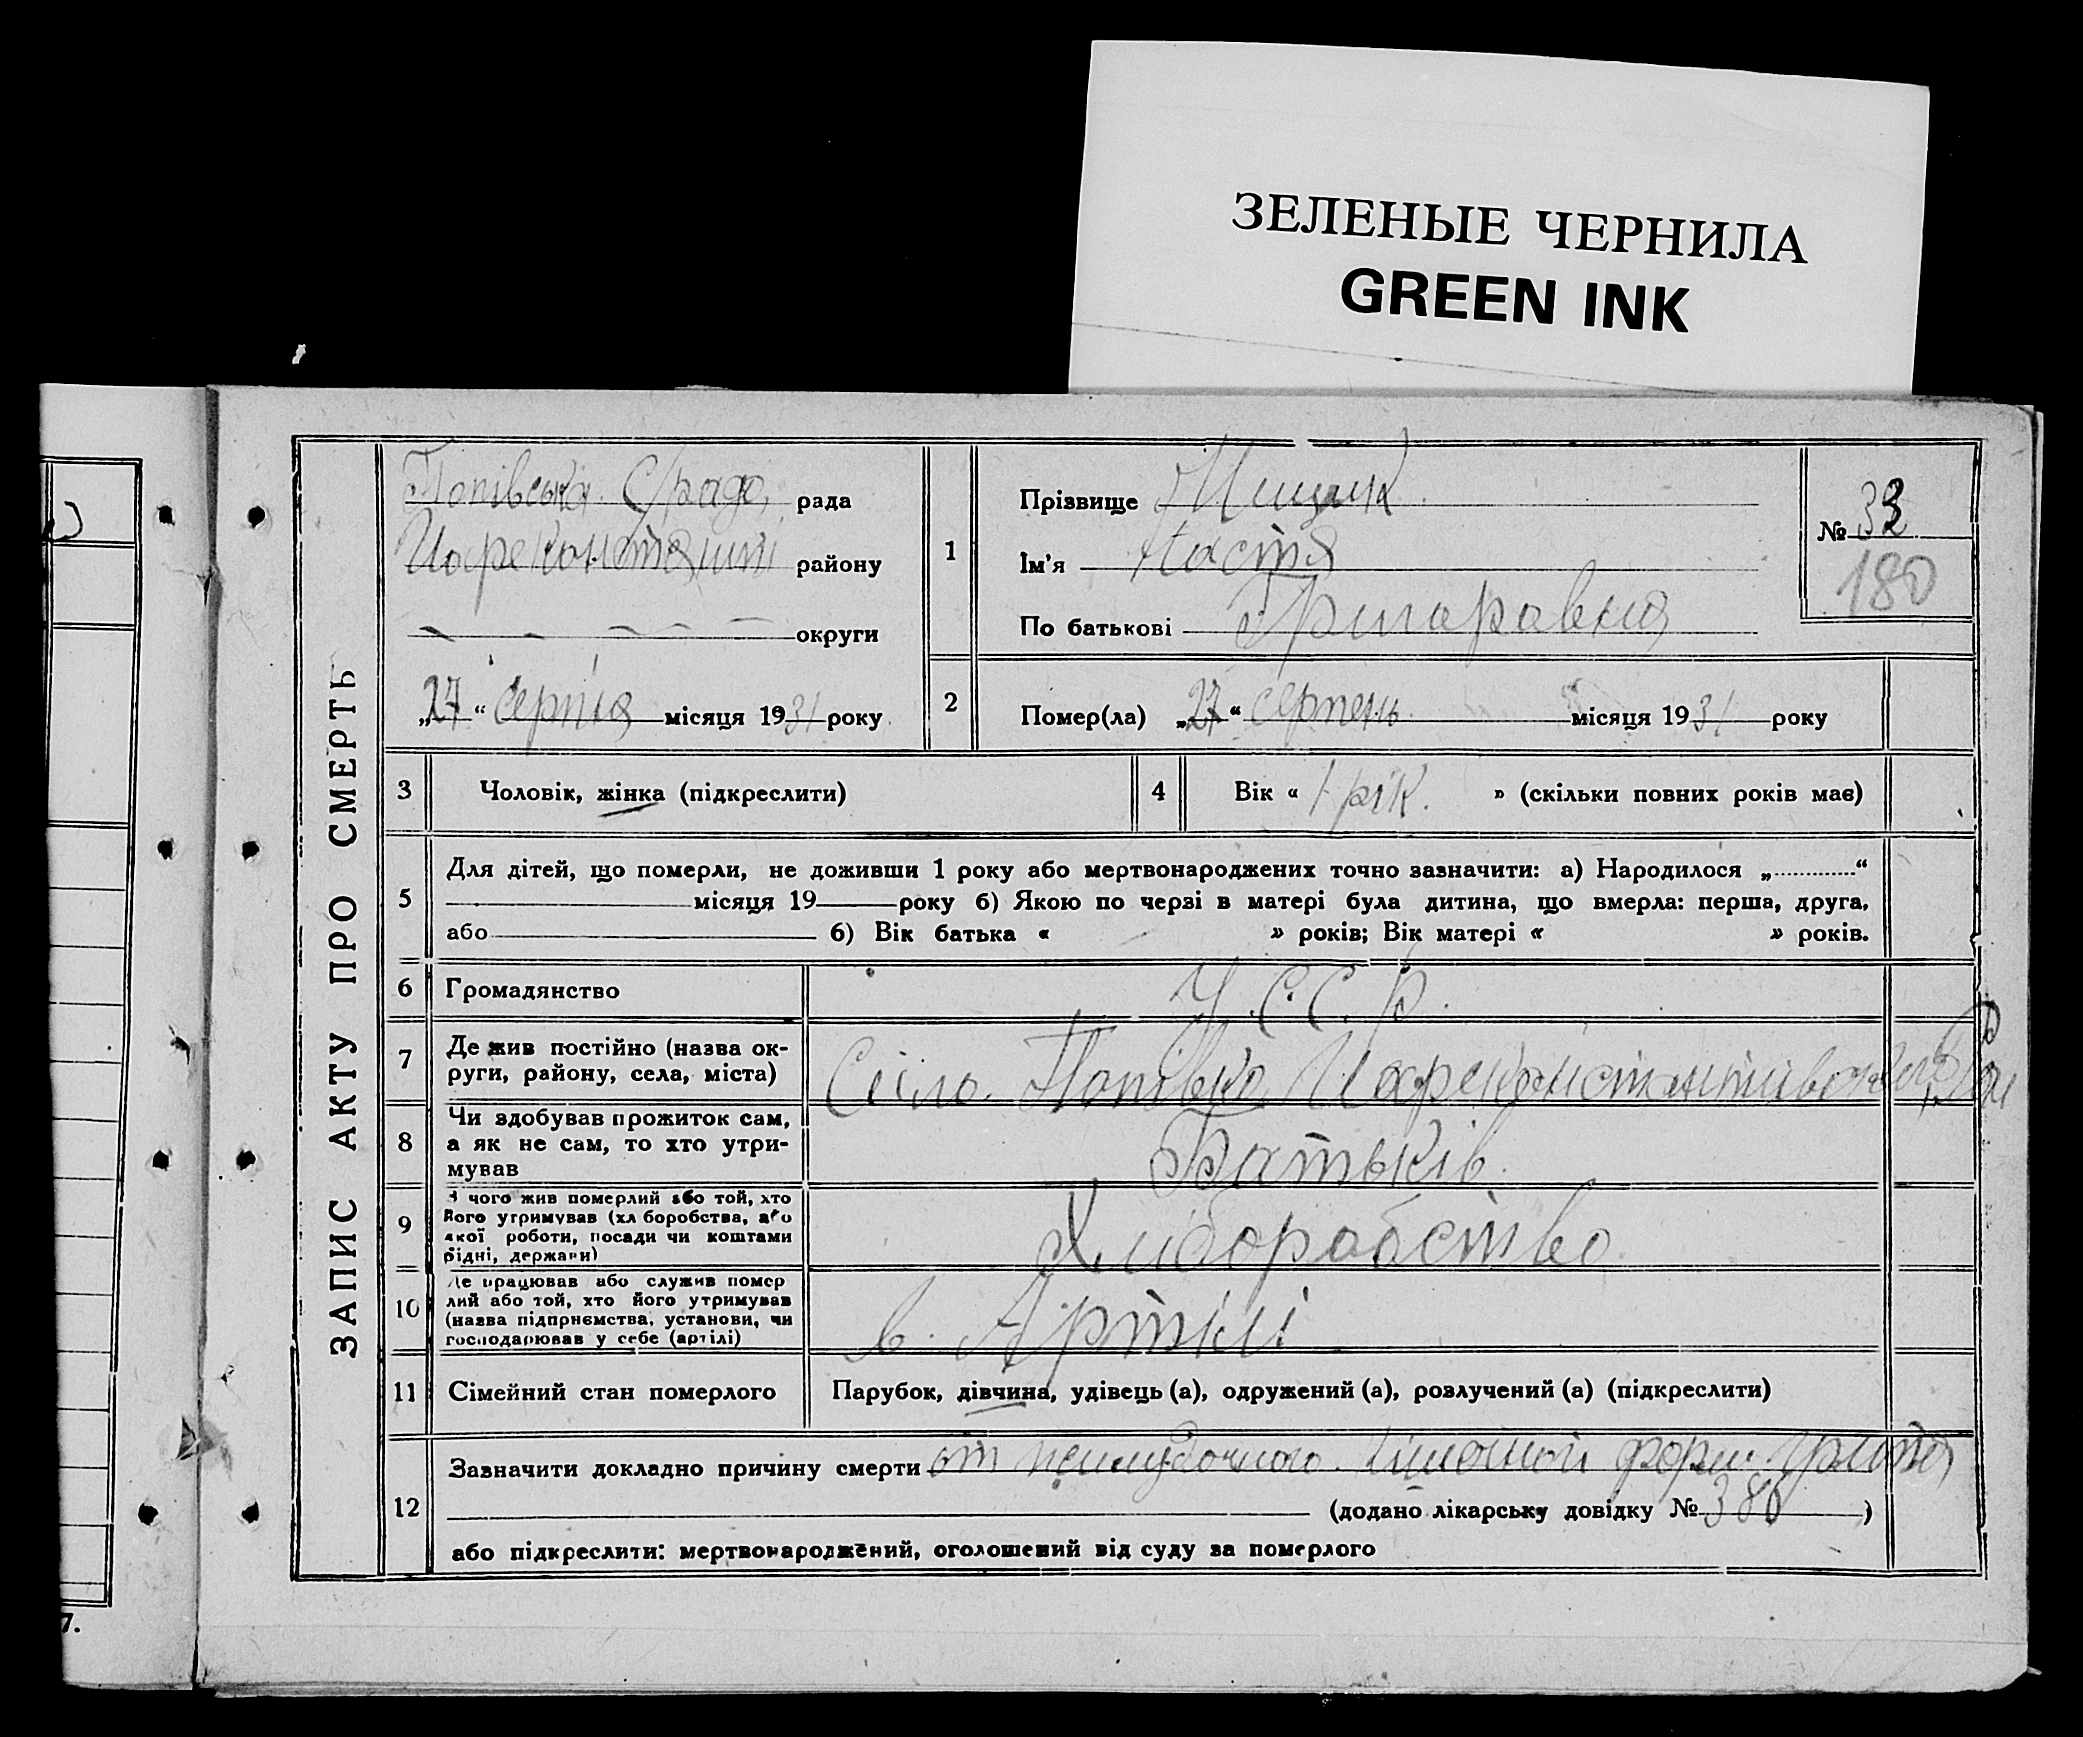 ЗЕЛЕНЫЕ ЧЕРНИЛА
GREEN INK
7.
ЗАПИС АКТУ ПРО СМЕРТЬ
Попівська С/рада, рада
району
округи
„27“ серпня місяця 1931 року
1
Прізвище
Ім'я Настя
По батькові Григоровна
№ 33
180
2
Помер(ла) „27“ серпень місяця 1931 року
3 Чоловік, жінка (підкреслити)
4 Вік « 1 рік. » (скільки повних років має)
5
Для дітей, що померли, не доживши 1 року або мертвонароджених точно зазначити: а) Народилося „ “
місяця 19 року б) Якою по черзі в матері була дитина, що вмерла: перша, друга,
або б) Вік батька « » років; Вік матері « » років.
6 Громадянство У.С.С.Р.
7
Де жив постійно (назва ок-
руги, району, села, міста)
Село Попівка
8
Чи здобував прожиток сам,
а як не сам, то хто утри-
мував
Батьків.
9
З чого жив померлий або той, хто
його утримував (хліборобства, або
якої роботи, посади чи коштами
рідні, держави)
Хліборобство
10
Де працював або служив помер
лий або той, хто його утримував
(назва підприємства, установи, чи
господарював у себе (артілі)
в. Артілі
11 Сімейний стан померлого Парубок, дівчина, удівець (а), одружений (а), розлучений (а) (підкреслити)
12
Зазначити докладно причину смерти от
(додано лікарську довідку № 386 )
або підкреслити: мертвонароджений, оголошений від суду за померлого